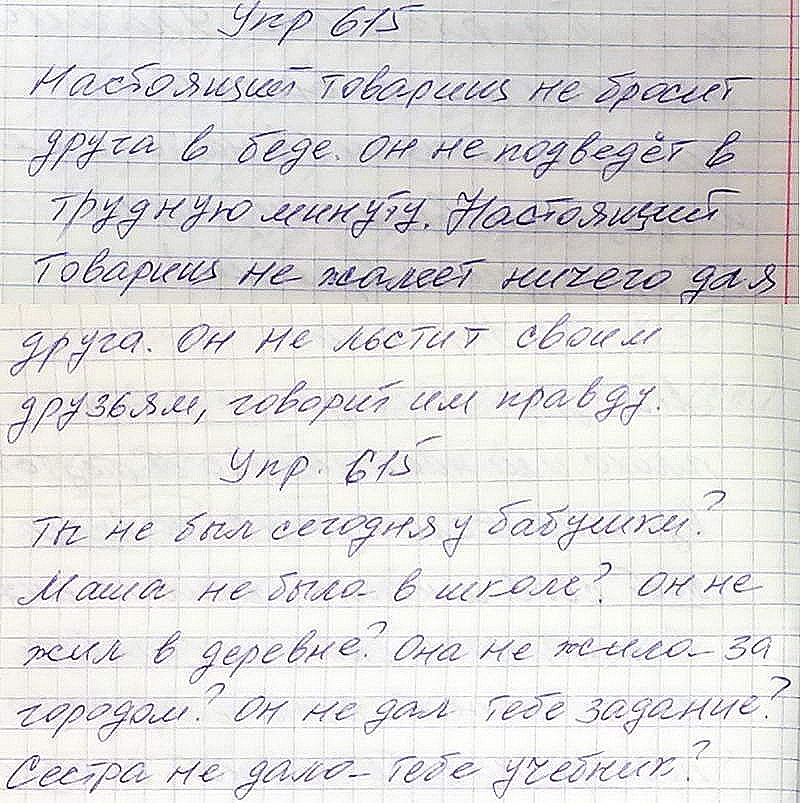 Упр 615
Настоящий товарищ не бросит
друга в беде. Он не подведёт в
трудную минуту. Настоящий
товарищ не жалеет ничего для
друга. Он не льстит своим
друзьям, говорит им правду.
Упр. 615
Ты не был сегодня у бабушки?
Маша не была в школе? Он не
жил в деревне? Она не жила за
городом? Он не дал тебе задание?
Сестра не дала тебе учебник?